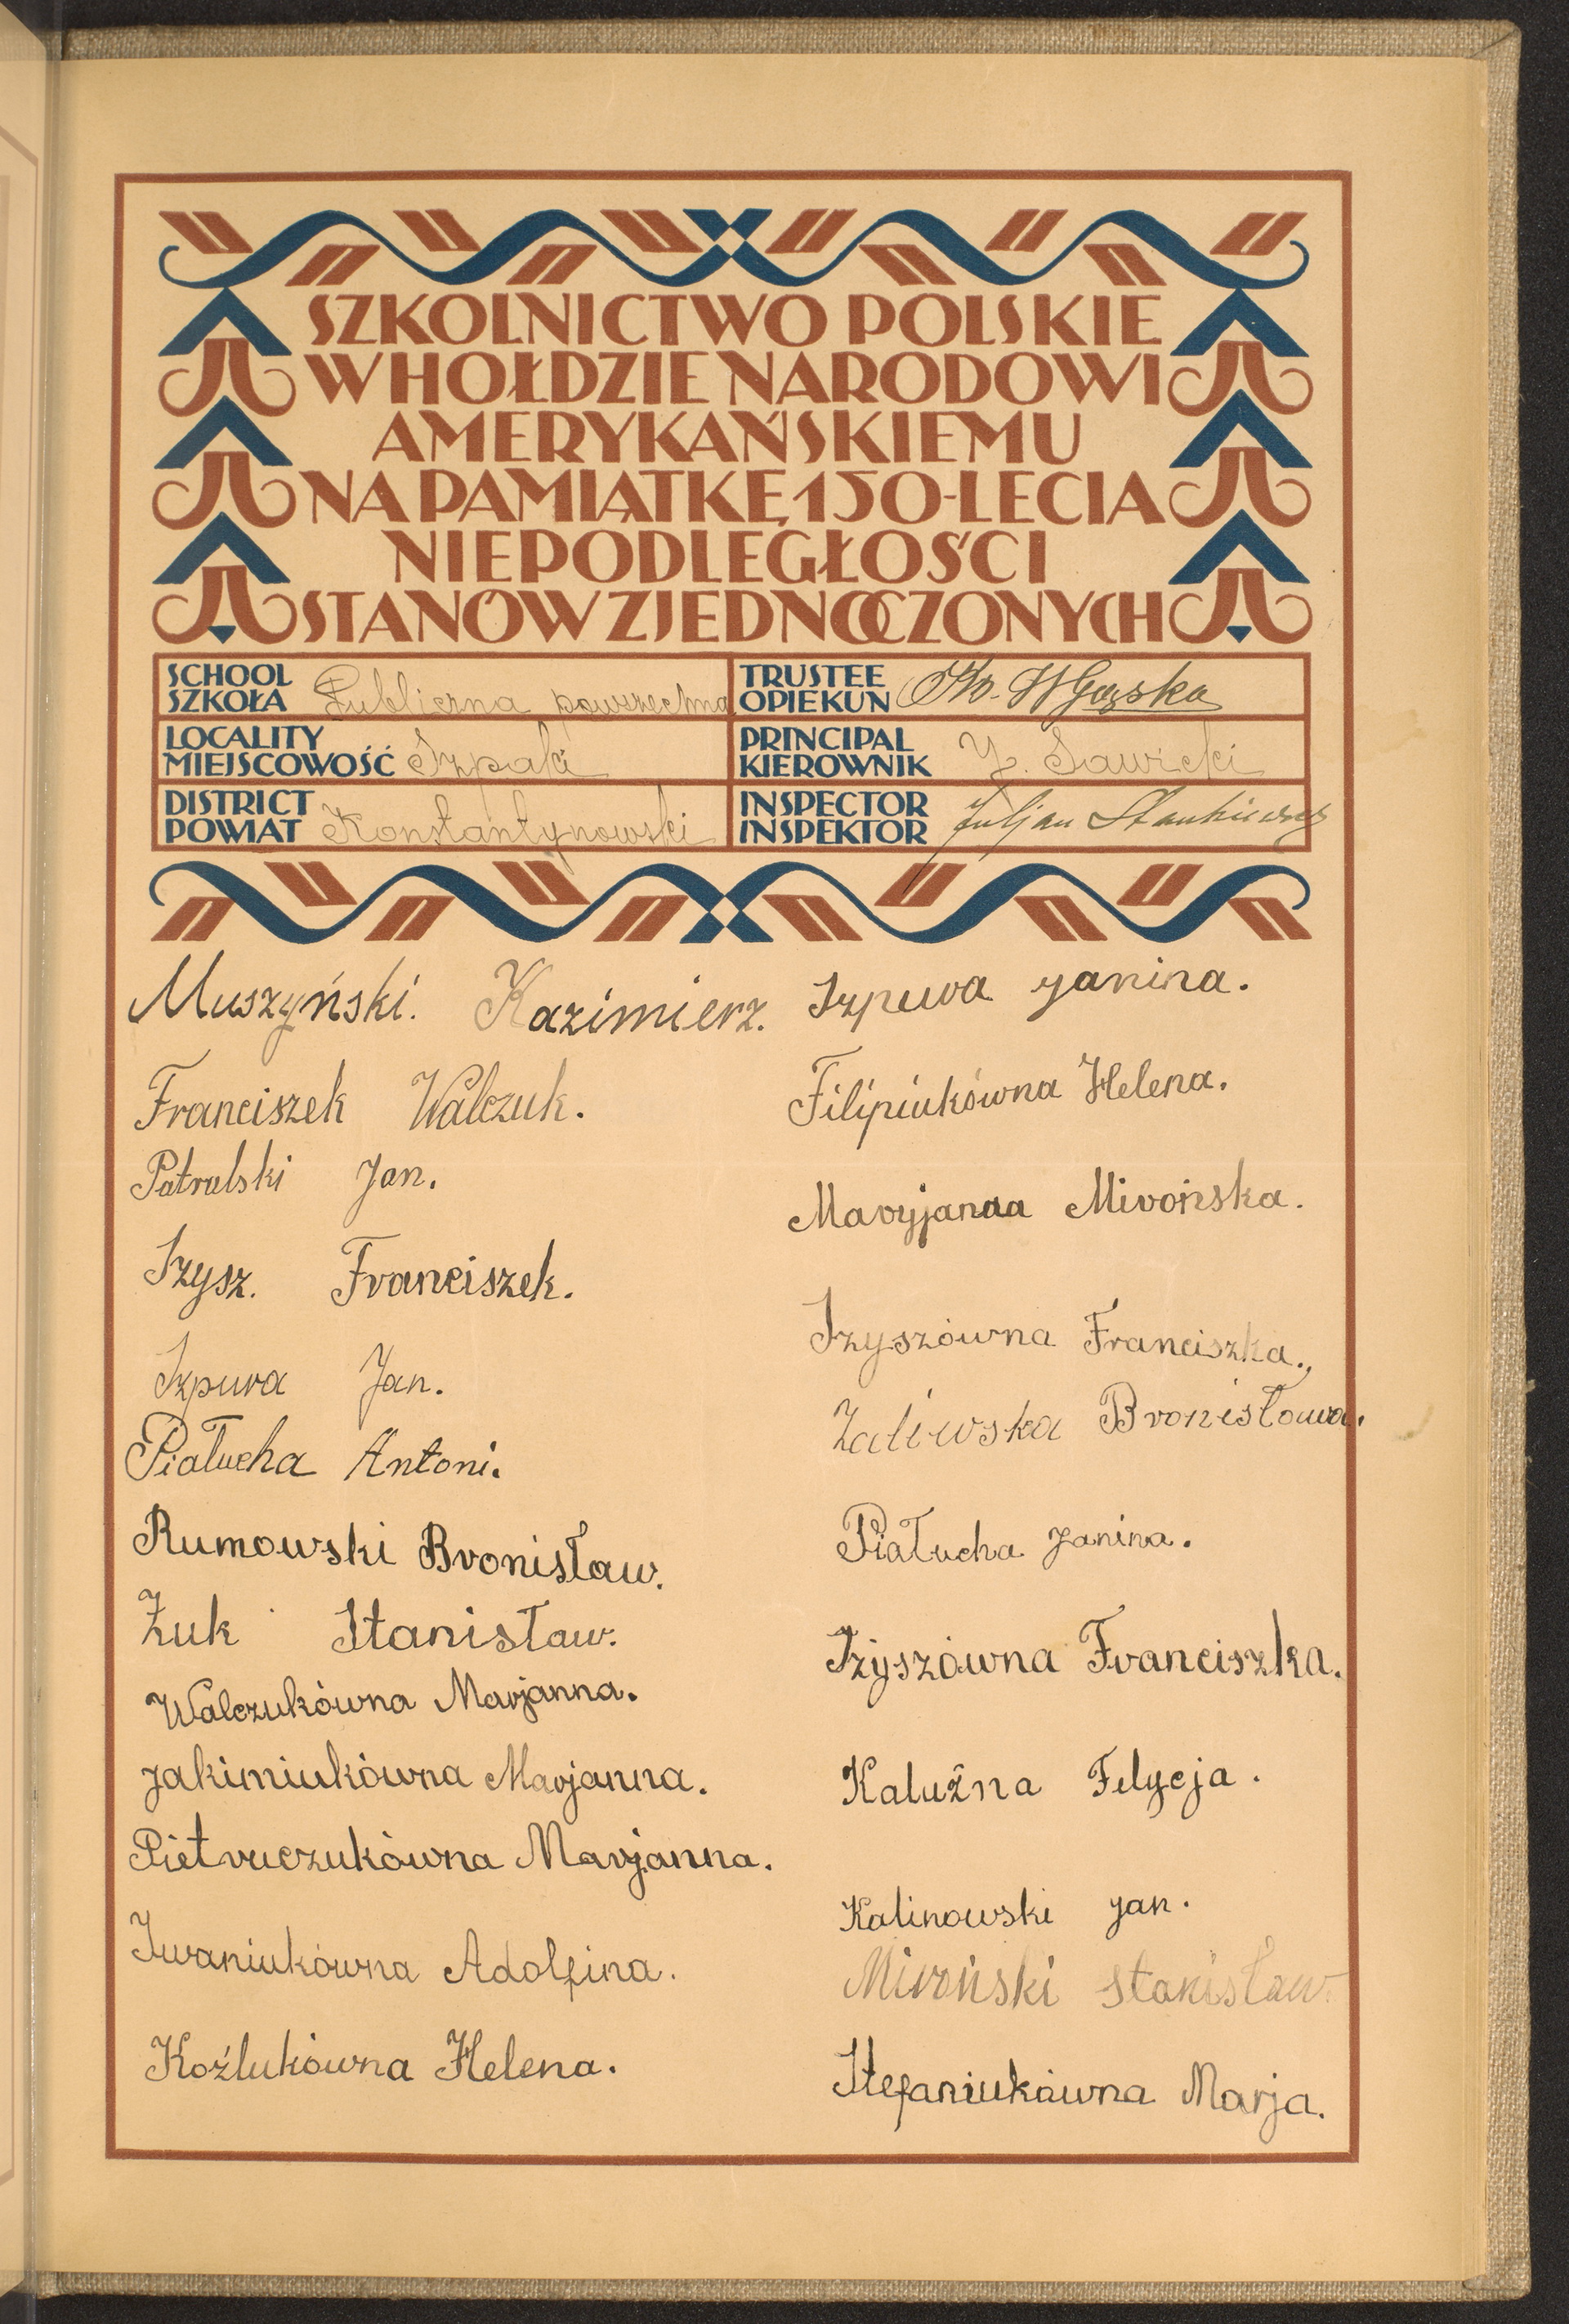 SZKOLNICTWO POLSKIE
W HOŁDZIE NARODOWI
AMERYKAŃSKIEMU
NA PAMIĄTKĘ 150-LECIA
NIEPODLEGŁOŚCI
STANÓW ZJEDNOCZONYCH
SCHOOL
SZKOŁA Publiczna powszechna
TRUSTEE
OPIEKUN
LOCALITY
MIEJSCOWOŚĆ Szpaki
PRINCIPAL
KIEROWNIK J. Sawicki
DISTRICT
POWIAT Konstantynowski
INSPECTOR
INSPEKTOR Juljan Stankiewicz
Muszyński. Kazimierz.
Franciszek Walczuk.
Patralski Jan.
Szysz. Franciszek.
Szpura Jan.
Piałucha Antoni.
Rumowski Bronisław.
Żuk Stanisław.
Walczukówna Marjanna.
Jakimiukówna Marjanna.
Pietruczukówna Marjanna.
Iwaniukówna Adolfina.
Koźlukówna Helena.
Szpura Janina.
Filipiukówna Helena.
Maryjanna Mirońska.
Szyszówna Franciszka.
Zaliwska Bronisława.
Piałucha Janina.
Szyszówna Franciszka.
Kaluźna Felycja.
Kalinowski Jan.
Miroński Stanisław.
Stefaniukówna Marja.